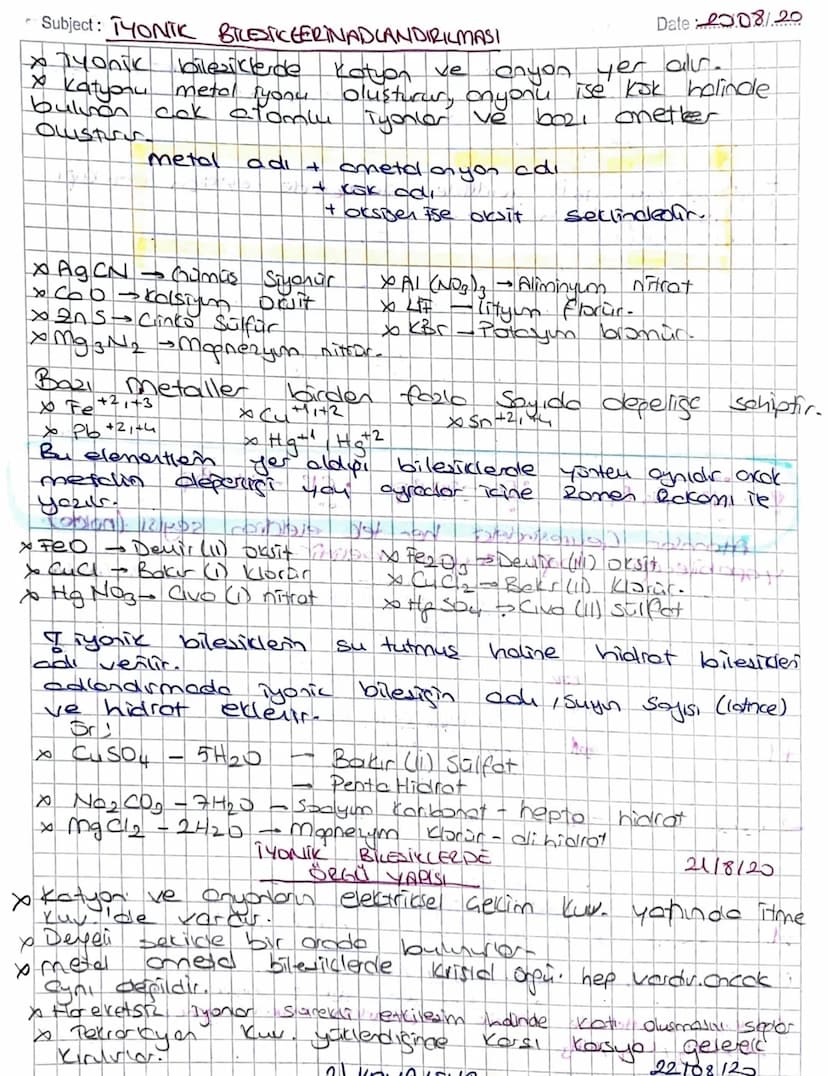 Subject: İYONİK BİLEŞİKLERİN ADLANDIRILMASI
Date: 20.08/20
x İyonik bileşiklerde katyon ve anyon yer alır.
x Katyonu metal iyonu oluşturur, anyonu ise kök halinde
bulunan çok atomlu iyonlar ve bazı ametller
oluşturur.
metal adı + ametal anyon adı
+ kök adı
+ oksijen ise oksit şeklindedir.
x AgCN → Gümüş Siyanür
x CaO → Kalsiyum Oksit
x ZnS → Çinko Sülfür
x Mg3N2 → Magnezyum nitrür.
x Al(NO3)3 → Aliminyum nitrat
x LiF — lityum florür.
x KBr — Potasyum bromür.
Bazı metaller birden fazla sayıda değerliğe sahiptir.
x Fe+2,+3 x Cu+1,+2 x Sn+2,+4
x Pb+2,+4 x Hg+1, Hg+2
Bu elementlerin yer aldığı bileşiklerde yöntem aynıdır ancak
metalin değerliği yayi ayraclar içine Romen Rakamı ile
yazılır.
x FeO → Demir (II) oksit
x CuCl → Bakır (I) klorür
x HgNO3 → Civa (I) nitrat
x Fe2O3 → Demir (III) oksit
x CuCl2 → Bakır (II) klorür.
x HgSO4 → Civa (II) sülfat
İyonik bileşiklerin su tutmuş haline hidrat bileşikleri
adı verilir.
adlandırmada iyonic bileşiğin adı, suyun sayısı (latince)
ve hidrat eklenir.
Ör;
x CuSO4 - 5H2O — Bakır (II) Sülfat
→ Penta Hidrat
x Na2CO3 - 7H2O — Sodyum karbonat - hepta hidrat
x MgCl2 - 2H2O → Magnezyum klorür - di hidrat
İYONİK BİLEŞİKLERDE
ÖRGÜ YAPISI
21/8/20
x Katyon ve anyonların elektriksel çekim kuv. yanında itme
kuv.'de vardır.
x Dengeli şekilde bir arada bulunurlar.
x metal ametal bileşiklerde kristal örgü hep vardır. ancak
aynı değildir.
x Hareketsiz iyonlar sürekli etkileşim halinde katı oluşmasını sağlar
x Tekrarlayan kuv. yüklendiğinde karşı karşıya gelerek
kırılırlar.
22/08/20